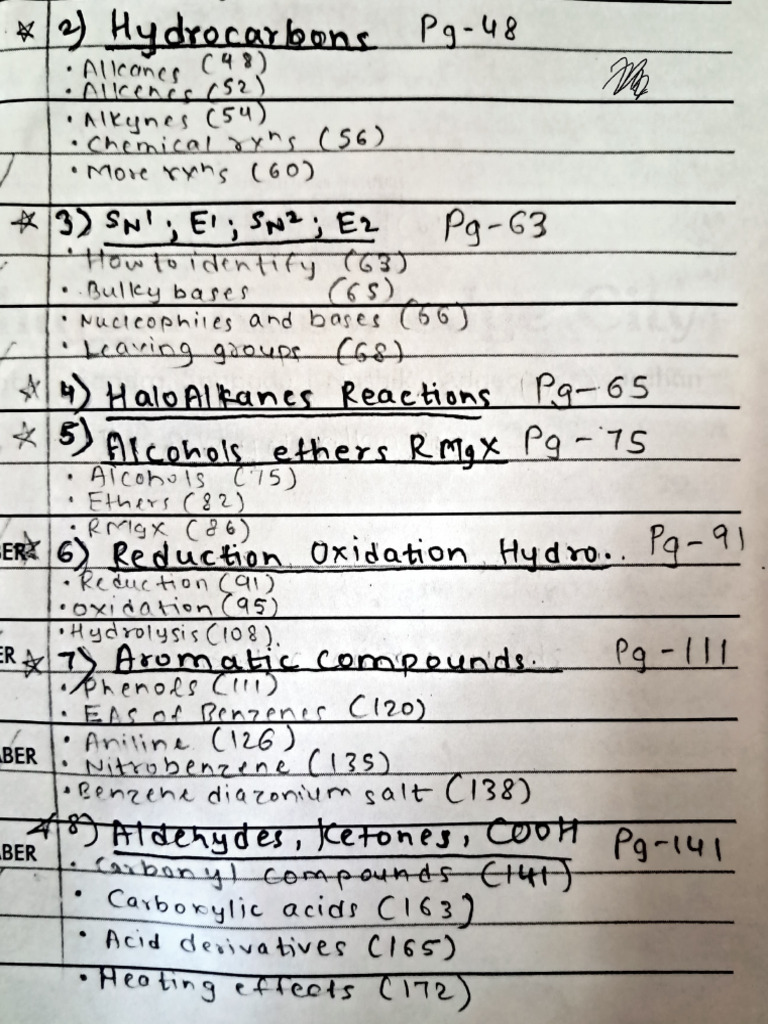 ☆ 2) Hydrocarbons Pg-48
• Alkanes (48)
• Alkenes (52)
• Alkynes (54)
• Chemical rxns (56)
• More rxns (60)
☆ 3) SN1 ; E1 ; SN2 ; E2 Pg-63
• How to identify (63)
• Bulky bases (65)
• Nucleophiles and bases (66)
• Leaving groups (68)
☆ 4) HaloAlkanes Reactions Pg-65
☆ 5) Alcohols ethers RMgX Pg-75
• Alcohols (75)
• Ethers (82)
• RMgX (86)
BER ☆ 6) Reduction Oxidation, Hydro.. Pg-91
• Reduction (91)
• Oxidation (95)
• Hydrolysis (108)
ER ☆ 7) Aromatic compounds. Pg-111
• Phenols (111)
• EAS of Benzenes (120)
• Aniline (126)
BER • Nitrobenzene (135)
• Benzene diazonium salt (138)
☆ 8) Aldehydes, Ketones, COOH Pg-141
BER • Carbonyl compounds (141)
• Carboxylic acids (163)
• Acid derivatives (165)
• Heating effects (172)